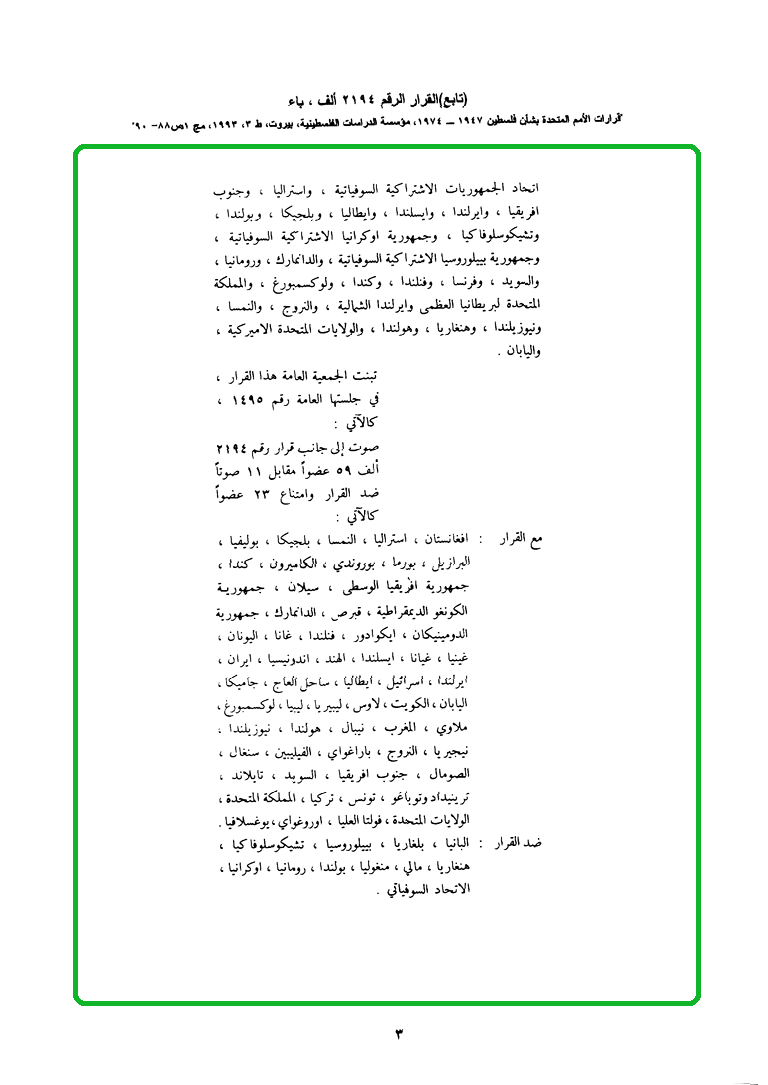 (تابع)القرار الرقم ٢١٩٤ ألف ، باء
قرارات الأمم المتحدة بشأن فلسطين ١٩٤٧ ــ ١٩٧٤، مؤسسة الدراسات الفلسطينية، بيروت، ط ٣، ١٩٩٣، مج ١ص٨٨– ٩٠
اتحاد الجمهوريات الاشتراكية السوفياتية ، واستراليا ، وجنوب
افريقيا ، وايرلندا ، وايسلندا ، وايطاليا ، وبلجيكا ، وبولندا ،
وتشيكوسلوفاكيا ، وجمهورية اوكرانيا الاشتراكية السوفياتية ،
وجمهورية بييلوروسيا الاشتراكية السوفياتية ، والدانمارك ، ورومانيا ،
والسويد ، وفرنسا ، وفنلندا ، وكندا ، ولوكسمبورغ ، والمملكة
المتحدة لبريطانيا العظمى وايرلندا الشمالية ، والنروج ، والنمسا ،
ونيوزيلندا ، وهنغاريا ، وهولندا ، والولايات المتحدة الاميركية ،
واليابان .
تبنت الجمعية العامة هذا القرار ،
في جلستها العامة رقم ١٤٩٥ ،
كالآتي :
صوت إلى جانب قرار رقم ٢١٩٤
ألف ٥٩ عضواً مقابل ١١ صوتاً
ضد القرار وامتناع ٢٣ عضواً
كالآتي :
مع القرار : افغانستان ، استراليا ، النمسا ، بلجيكا ، بوليفيا ،
البرازيل ، بورما ، بوروندي ، الكاميرون ، كندا ،
جمهورية افريقيا الوسطى ، سيلان ، جمهورية
الكونغو الديمقراطية ، قبرص ، الدانمارك ، جمهورية
الدومينيكان ، ايكوادور ، فنلندا ، غانا ، اليونان ،
غينيا ، غيانا ، ايسلندا ، الهند ، اندونيسيا ، ايران ،
ايرلندا ، اسرائيل ، ايطاليا ، ساحل العاج ، جاميكا ،
اليابان ، الكويت ، لاوس ، ليبيريا ، ليبيا ، لوكسمبورغ ،
ملاوي ، المغرب ، نيبال ، هولندا ، نيوزيلندا ،
نيجيريا ، النروج ، باراغواي ، الفيليبين ، سنغال ،
الصومال ، جنوب افريقيا ، السويد ، تايلاند ،
ترينيداد وتوباغو ، تونس ، تركيا ، المملكة المتحدة ،
الولايات المتحدة ، فولتا العليا ، اوروغواي ، يوغسلافيا .
ضد القرار : البانيا ، بلغاريا ، بييلوروسيا ، تشيكوسلوفاكيا ،
هنغاريا ، مالي ، منغوليا ، بولندا ، رومانيا ، اوكرانيا ،
الاتحاد السوفياتي .
٣